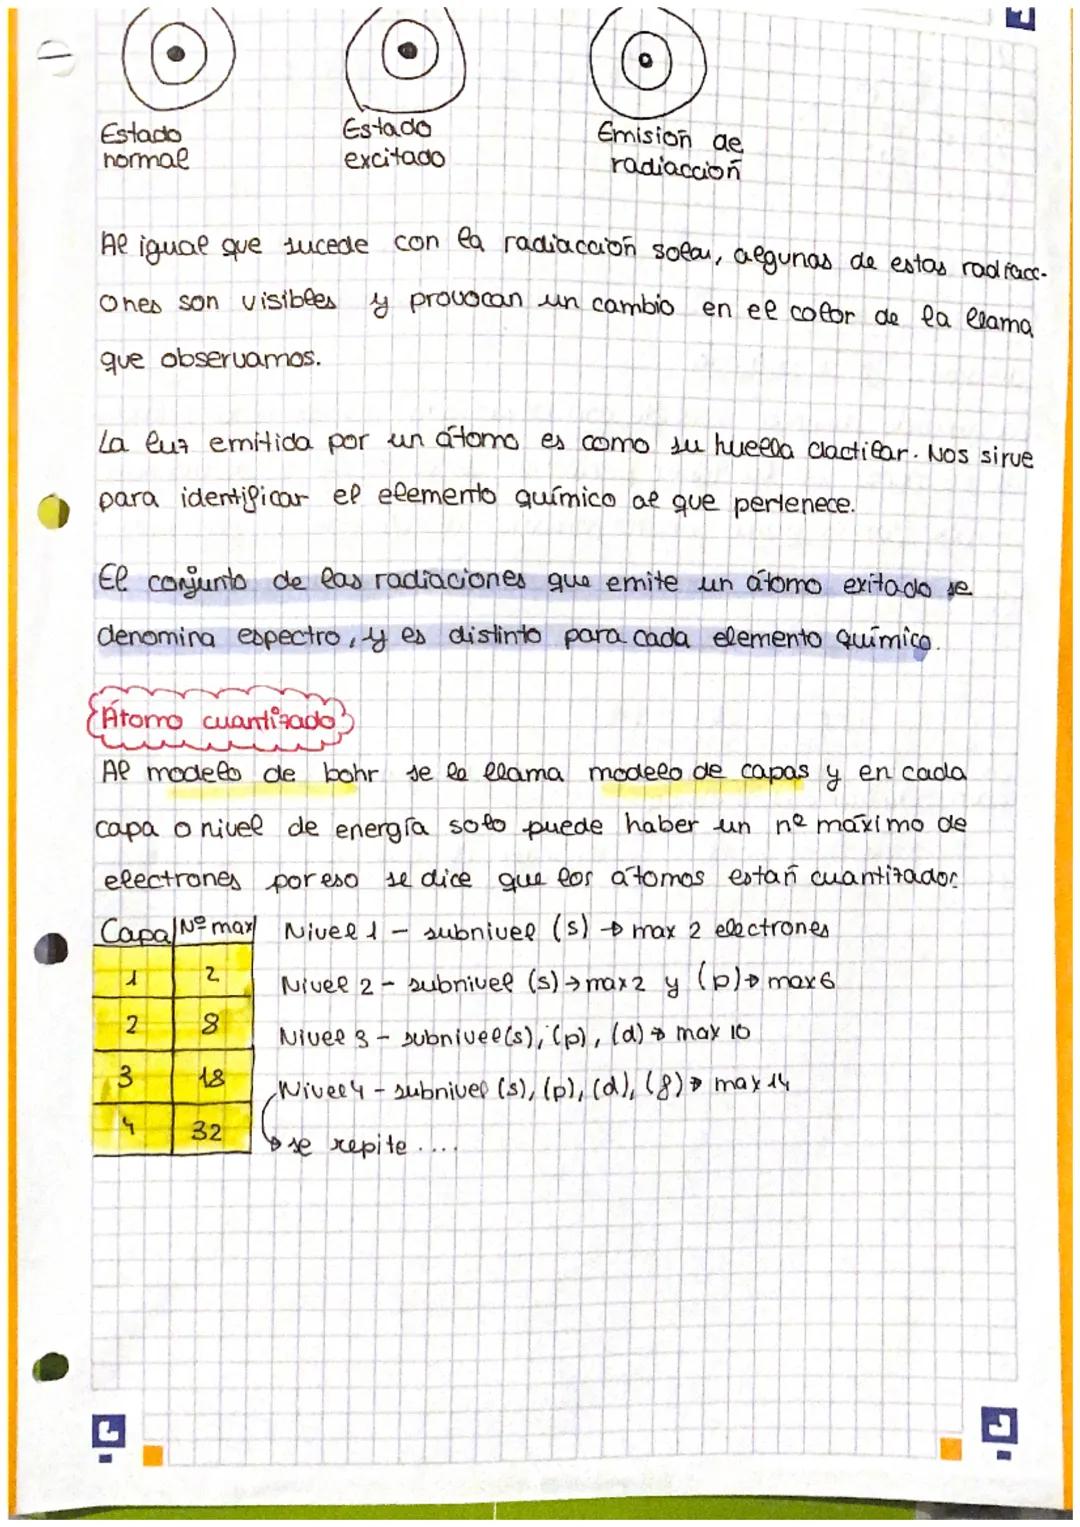 Estado
normal
Estado
excitado
Emisión de
radiacción
Al igual que sucede con la radiacción solar, algunas de estas radiacc-
ones son visibles y provocan un cambio en el color de la llama
que observamos.
La luz emitida por un átomo es como su huella dactilar. Nos sirve
para identificar el elemento químico al que pertenece.
El conjunto de las radiaciones que emite un átomo exitado se
denomina espectro, y es distinto para cada elemento químico.
Átomo cuantizado
Al modelo de bohr se le llama modelo de capas y en cada
capa o nivel de energía solo puede haber un nº máximo de
electrones por eso se dice que los átomos están cuantizados.
Capa Nº max
1 2
2 8
3 18
4 32
Nivel 1 - subnivel (s) → max 2 electrones
Nivel 2 - subnivel (s) → max 2 y (p) → max 6
Nivel 3 - subnivel (s), (p), (d) → max 10
Nivel 4 - subnivel (s), (p), (d), (f) → max 14
→ se repite ....